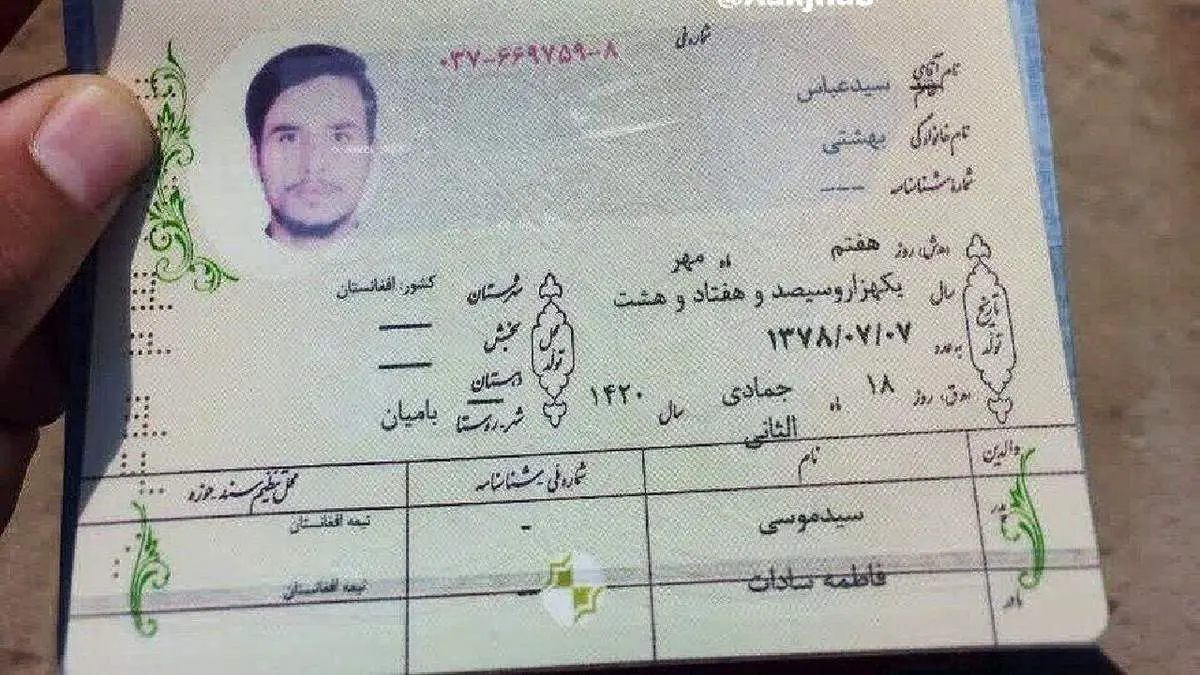 شماره ملی ۰۳۷-۶۶۹۷۵۹-۸
نام آقای سیدعباس
نام خانوادگی بهشتی
شماره شناسنامه ---
تاریخ تولد
روز هفتم ماه مهر
سال یکهزاروسیصد و هفتاد و هشت
به عدد ۱۳۷۸/۰۷/۰۷
روز ۱۸ ماه جمادی الثانی سال ۱۴۲۰
محل تولد
شهرستان کشور: افغانستان
بخش —
دهستان —
شهر-روستا بامیان
والدین نام شماره ملی شناسنامه محل تنظیم سند-حوزه
پدر سیدموسی - تبعه افغانستان
مادر فاطمه سادات - تبعه افغانستانی